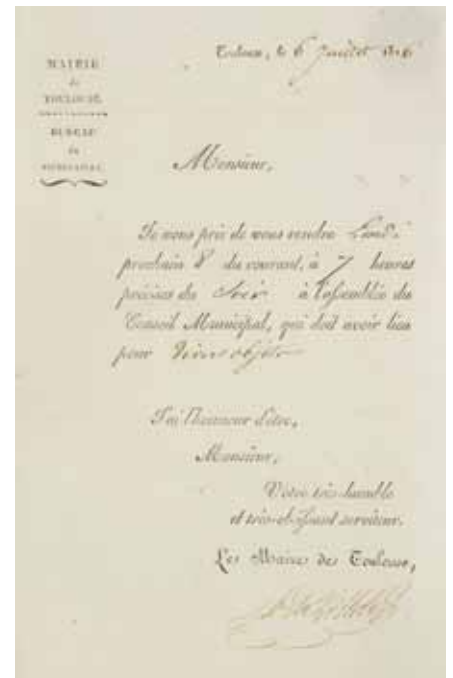 Toulouse, le 6 Juillet 1816
MAIRIE
de
TOULOUSE.
BUREAU
du
SECRÉTARIAT.
Monsieur,
Je vous prie de vous rendre Lundi
prochain 8 du courant, à 7 heures
précises du Soir à l'assemblée du
Conseil Municipal, qui doit avoir lieu
pour divers objets
J'ai l'honneur d'être,
Monsieur,
Votre très-humble
et très-obéissant serviteur.
Le Maire de Toulouse,